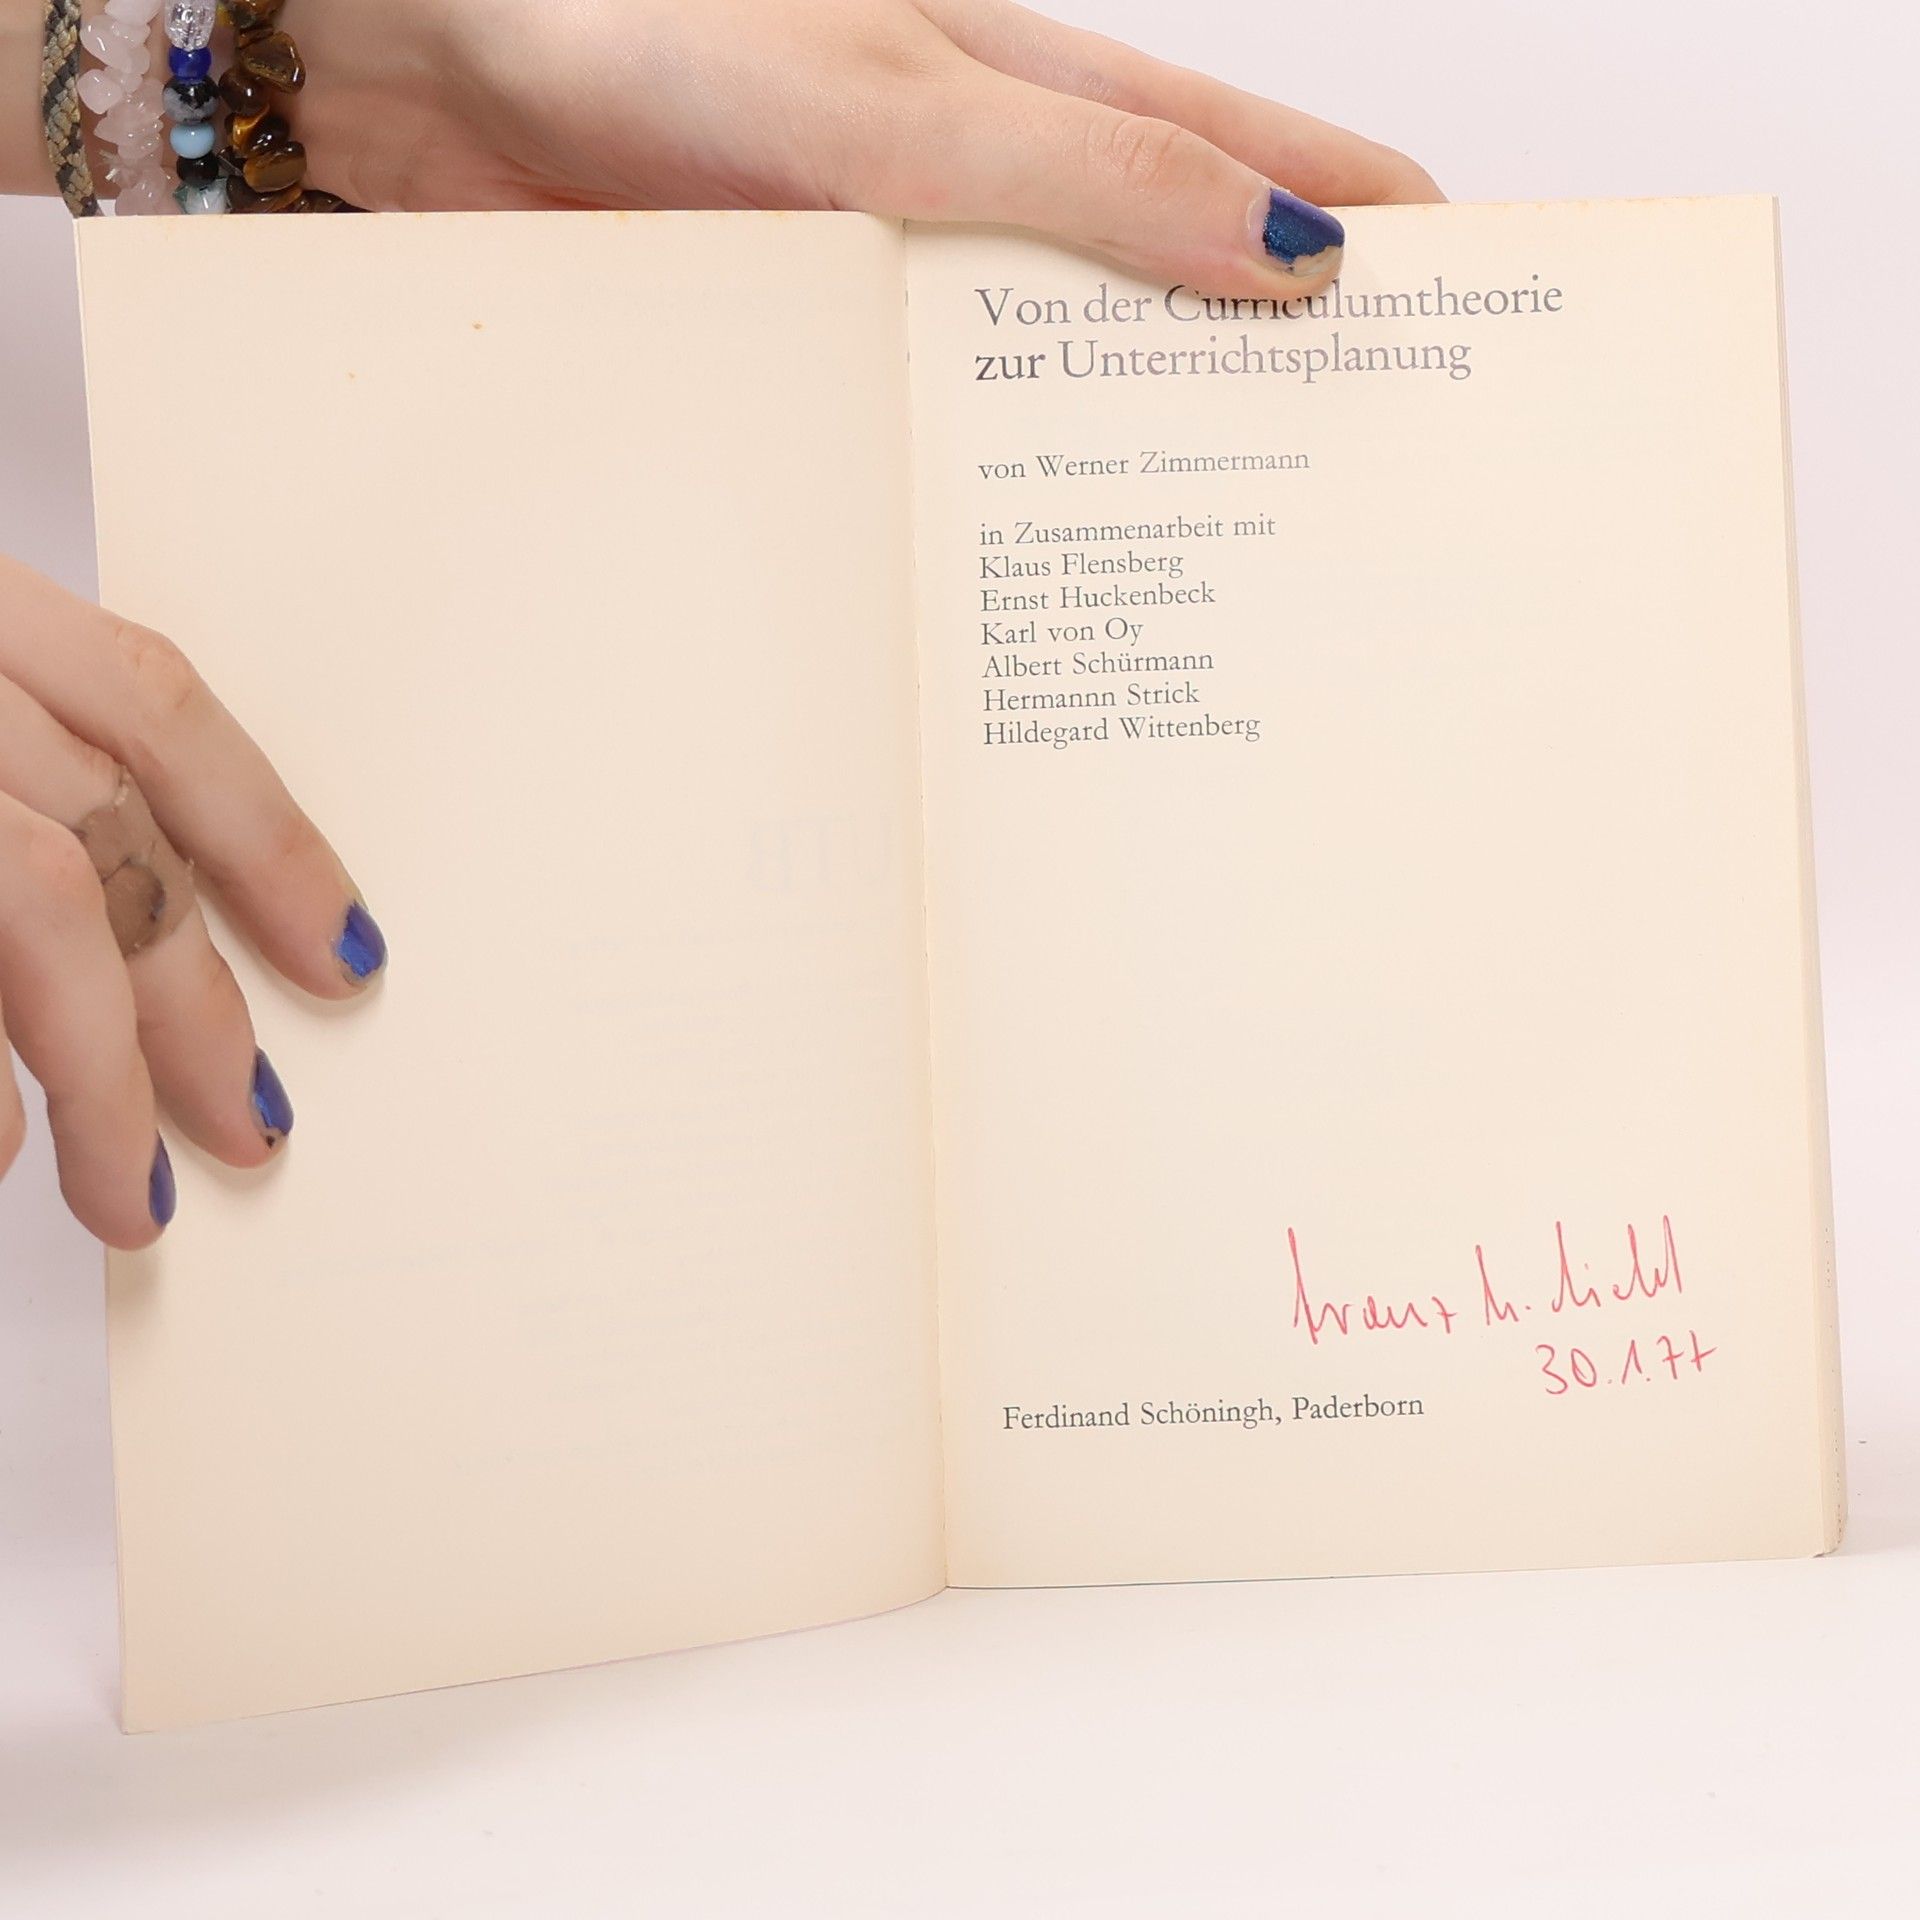 Von der Curriculumtheorie
zur Unterrichtsplanung
von Werner Zimmermann
in Zusammenarbeit mit
Klaus Flensberg
Ernst Huckenbeck
Karl von Oy
Albert Schürmann
Hermannn Strick
Hildegard Wittenberg
Franz
30.1.77
Ferdinand Schöningh, Paderborn
UTB